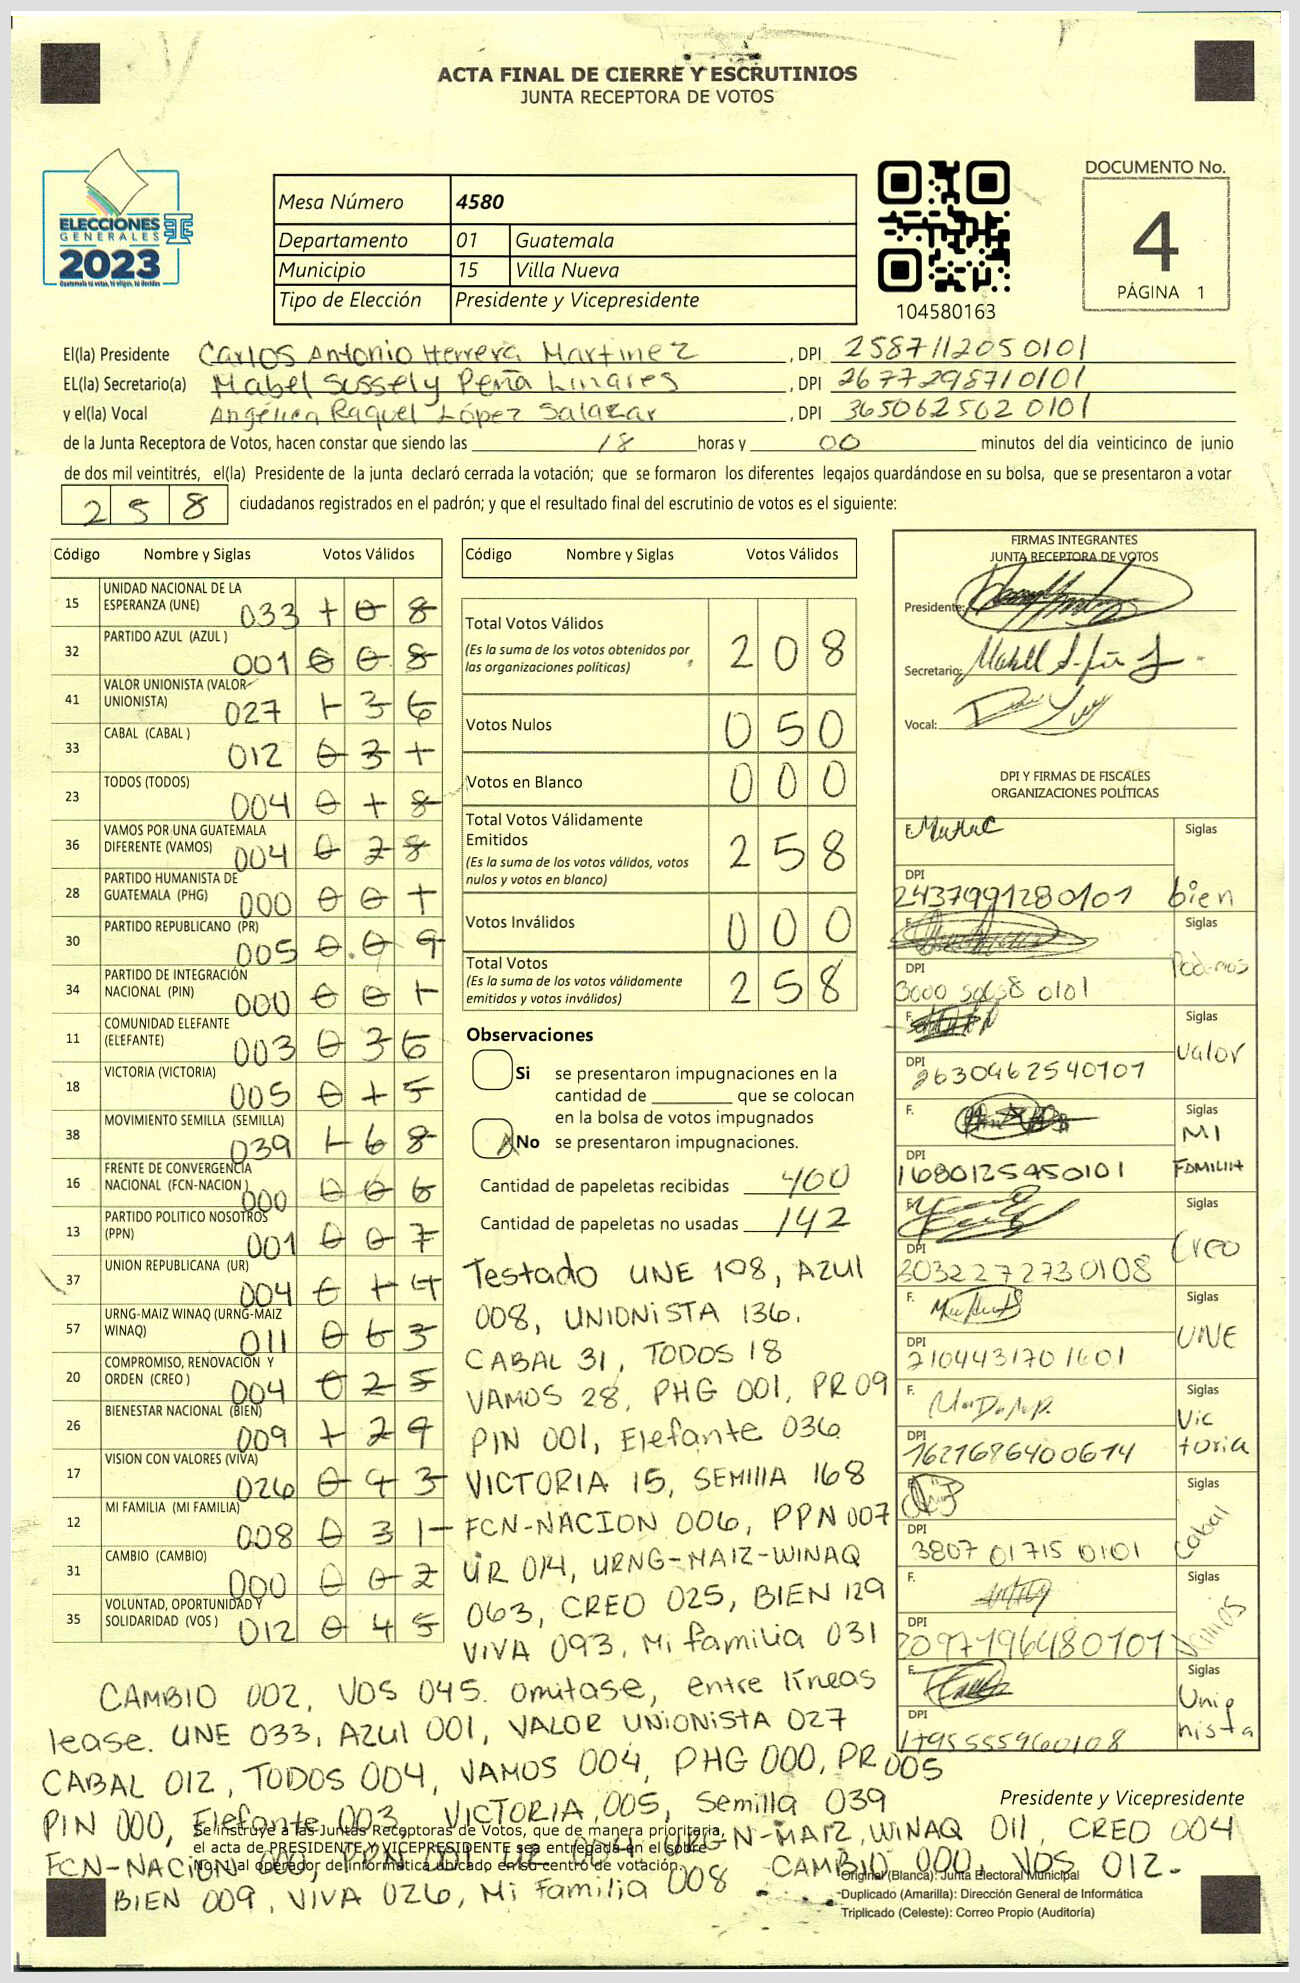 ACTA FINAL DE CIERRE Y ESCRUTINIOS
JUNTA RECEPTORA DE VOTOS
ELECCIONES
GENERALES
2023
Guatemala tú votas, tú eliges, tú decides
Mesa Número 4580
Departamento 01 Guatemala
Municipio 15 Villa Nueva
Tipo de Elección Presidente y Vicepresidente
104580163
DOCUMENTO No.
4
PÁGINA 1
El(la) Presidente Carlos Antonio Herrera Martinez , DPI 2587112050101
EL(la) Secretario(a) Mabel Sussely Peña Linares , DPI 2677298710101
y el(la) Vocal Angélica Raquel López Salazar , DPI 3650625620101
de la Junta Receptora de Votos, hacen constar que siendo las 18 horas y 00 minutos del día veinticinco de junio
de dos mil veintitrés, el(la) Presidente de la junta declaró cerrada la votación; que se formaron los diferentes legajos guardándose en su bolsa, que se presentaron a votar
258 ciudadanos registrados en el padrón; y que el resultado final del escrutinio de votos es el siguiente:
Código Nombre y Siglas Votos Válidos
15 UNIDAD NACIONAL DE LA
ESPERANZA (UNE) 033 1 0 8
32 PARTIDO AZUL (AZUL ) 001 0 0 8
41 VALOR UNIONISTA (VALOR
UNIONISTA) 027 1 3 6
33 CABAL (CABAL ) 012 0 3 1
23 TODOS (TODOS) 004 0 1 8
36 VAMOS POR UNA GUATEMALA
DIFERENTE (VAMOS) 004 0 2 8
28 PARTIDO HUMANISTA DE
GUATEMALA (PHG) 000 0 0 1
30 PARTIDO REPUBLICANO (PR) 005 0 0 9
34 PARTIDO DE INTEGRACIÓN
NACIONAL (PIN) 000 0 0 1
11 COMUNIDAD ELEFANTE
(ELEFANTE) 003 0 3 6
18 VICTORIA (VICTORIA) 005 0 1 5
38 MOVIMIENTO SEMILLA (SEMILLA) 039 1 6 8
16 FRENTE DE CONVERGENCIA
NACIONAL (FCN-NACION ) 000 0 0 6
13 PARTIDO POLITICO NOSOTROS
(PPN) 001 0 0 7
37 UNION REPUBLICANA (UR) 004 0 1 4
57 URNG-MAIZ WINAQ (URNG-MAIZ
WINAQ) 011 0 6 3
20 COMPROMISO, RENOVACIÓN Y
ORDEN (CREO ) 004 0 2 5
26 BIENESTAR NACIONAL (BIEN) 009 1 2 9
17 VISION CON VALORES (VIVA) 026 0 9 3
12 MI FAMILIA (MI FAMILIA) 008 0 3 1
31 CAMBIO (CAMBIO) 000 0 0 2
35 VOLUNTAD, OPORTUNIDAD Y
SOLIDARIDAD (VOS ) 012 0 4 5
Código Nombre y Siglas Votos Válidos
Total Votos Válidos
(Es la suma de los votos obtenidos por
las organizaciones políticas) 2 0 8
Votos Nulos 0 5 0
Votos en Blanco 0 0 0
Total Votos Válidamente
Emitidos
(Es la suma de los votos válidos, votos
nulos y votos en blanco) 2 5 8
Votos Inválidos 0 0 0
Total Votos
(Es la suma de los votos válidamente
emitidos y votos inválidos) 2 5 8
Observaciones
Si se presentaron impugnaciones en la
cantidad de ________ que se colocan
en la bolsa de votos impugnados
X No se presentaron impugnaciones.
Cantidad de papeletas recibidas 400
Cantidad de papeletas no usadas 142
Testado UNE 108, AZUl
008, UNIONiSTA 136.
CABAL 31, TODOS 18
VAMOS 28, PHG 001, PR 09
PIN 001, Elefante 036
VICTORIA 15, SEMIllA 168
FCN-NACION 006, PPN 007
UR 014, URNG-MAIZ-WINAQ
063, CREO 025, BIEN 129
ViVA 093, Mi familia 031
CAMBIO 002, VOS 045. omitase, entre líneas
lease. UNE 033, AZUl 001, VALOR UNiONiSTA 027
CABAL 012, TODOS 004, VAMOS 004, PHG 000, PR 005
PIN 000, Elefante 003, VICTORIA 005, Semilla 039
FCN-NACION 000, PPN 001 UR 004 URGN-MAIZ, WINAQ 011, CREO 004
BIEN 009, VIVA 026, Mi Familia 008 CAMBIO 000, VOS 012.
FIRMAS INTEGRANTES
JUNTA RECEPTORA DE VOTOS
Presidente:
Secretario:
Vocal:
DPI Y FIRMAS DE FISCALES
ORGANIZACIONES POLÍTICAS
F. Siglas
DPI 2437991280101 bien
F. Siglas
DPI Podemos
F. Siglas
DPI 2630462540101 Valor
F. Siglas
DPI 1680125450101 MI FAMILIA
F. Siglas
DPI 3032272730108 Creo
F. Siglas
DPI 2104431701601 UNE
F. Siglas
DPI 1621686400614 Victoria
F. Siglas
DPI 3807 01715 0101 Cabal
F. Siglas
DPI 2097196480101 Vamos
F. Siglas
DPI 1795555960108 Unionista
Presidente y Vicepresidente
Se instruye a las Juntas Receptoras de Votos, que de manera prioritaria,
el acta de PRESIDENTE Y VICEPRESIDENTE sea entregada en el sobre
No. al operador de informática ubicado en su centro de votación.
Original (Blanca): Junta Electoral Municipal
Duplicado (Amarilla): Dirección General de Informática
Triplicado (Celeste): Correo Propio (Auditoría)